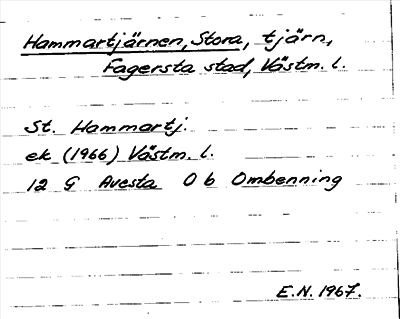 Hammartjärnen, Stora, tjärn,
Fagersta stad, Västm. l.
St. Hammartj.
ek (1966) Västm. l.
12 G Avesta O b Ombenning
E.N. 1967.